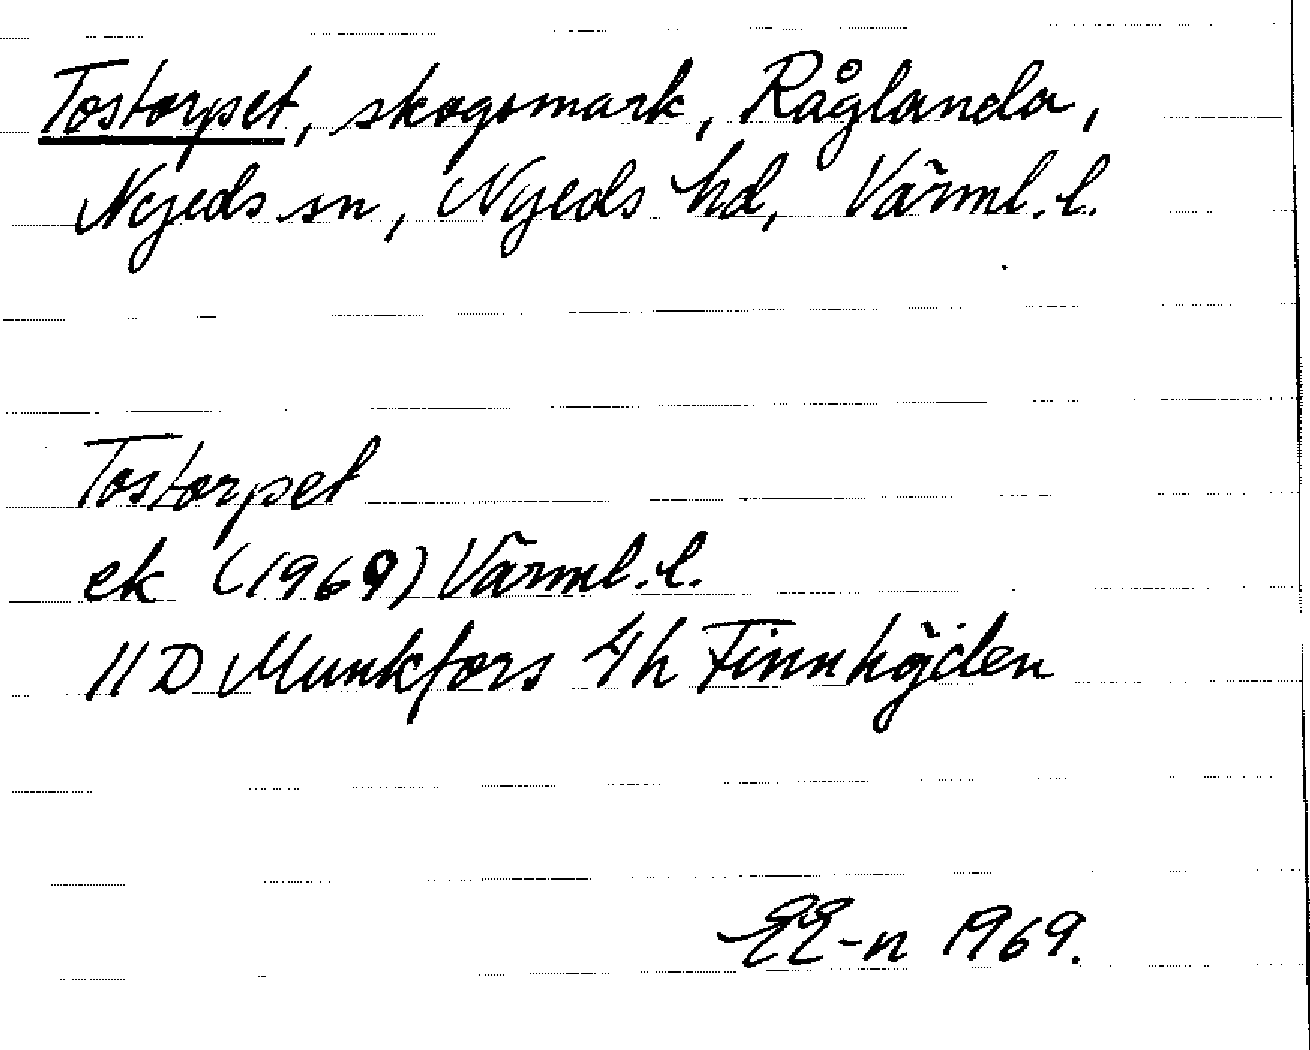 Tostorpet, skogsmark, Råglanda,
Nyeds sn, Nyeds hd, Värml. l.
Tostorpet
ek (1969) Värml. l.
11D Munkfors 4h Finnhöjden
EE-n 1969.